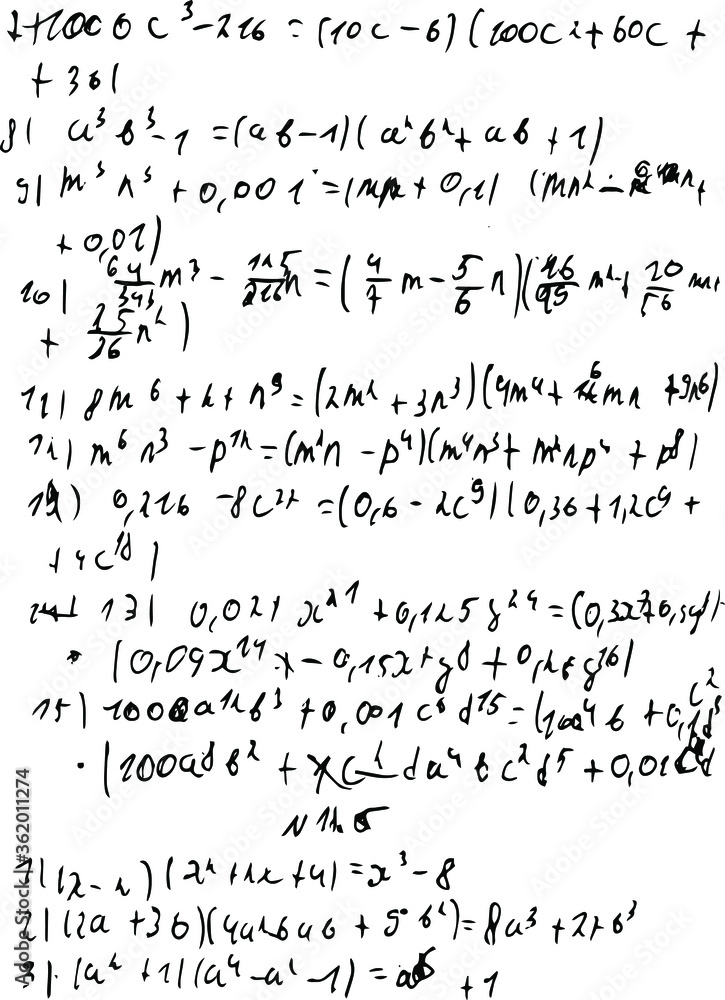 7) 1000 c³ - 216 = (10c - 6) (100c² + 60c +
+ 36)
8) a³ b³ - 1 = (ab - 1) (a²b² + ab + 1)
9) m³ n³ + 0,001 = (mn + 0,1) (mn² -
+ 0,01)
10) 64/343 m³ - 125/216 n = (4/7 m - 5/6 n) (16/95 m² + 20/56 mn +
+ 25/36 n²)
11) 8m⁶ + n⁹ = (2m² + 3n³) (4m⁴ + 6mn + 9n6)
12) m⁶ n³ - p¹² = (m²n - p⁴) (m⁴n³ + m²np⁴ + p⁸)
14) 0,216 - 8c²⁷ = (0,6 - 2c⁹) (0,36 + 1,2c⁹ +
+ 4c¹⁸)
13) 0,027 x²¹ + 0,125 y²⁴ = (0,3x⁷ + 0,5y⁸)·
· (0,09x¹⁴ - 0,15x⁷y⁸ + 0,25y¹⁶)
15) 1000a¹²b³ + 0,001 c⁶ d¹⁵ = (10a⁴ b + 0,1 c² d⁵
· (100a⁸ b² + da⁴ b c² d⁵ + 0,01
1) (x - 2) (x² + 2x + 4) = x³ - 8
2) (2a + 3b) (4a² 6ab + 9 b²) = 8a³ + 27b³
3) (a² + 1) (a⁴ - a² - 1) = a⁶ + 1